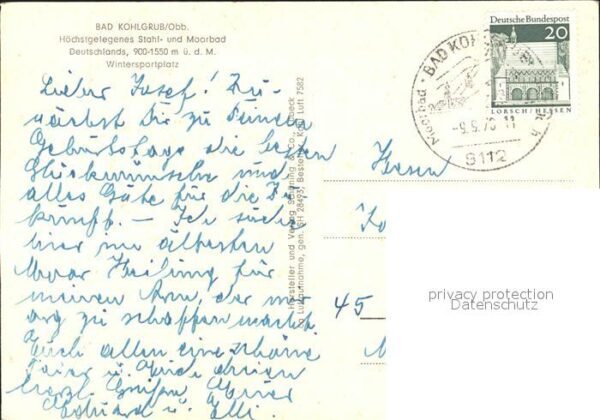 BAD KOHLGRUB/Obb.
Höchstgelegenes Stahl- und Moorbad
Deutschlands, 900-1550 m ü. d. M.
Wintersportplatz
Lieber Josef! Zu-
nächst Dir zu Deinem
Geburtstage die besten
Glückwünsche und
alles Gute für die Zu-
kunft. — Ich suche
hier im ältesten
Moor Heilung für
meinen Arm, der mir
arg zu schaffen macht.
Euch allen eine schöne
Feier u. Euch dreien
herzl. Grüße, Eure
u. Elli.
Hersteller und Verlag Schöning & Co., Lübeck
Luftaufnahme, gen. SH 28493, Bestell-Nr. Luft 7582
Deutsche Bundespost
20
LORSCH/HESSEN
BAD KOHLGRUB
Moorbad
-9.5.70-11
8112
Herrn
45
privacy protection
Datenschutz